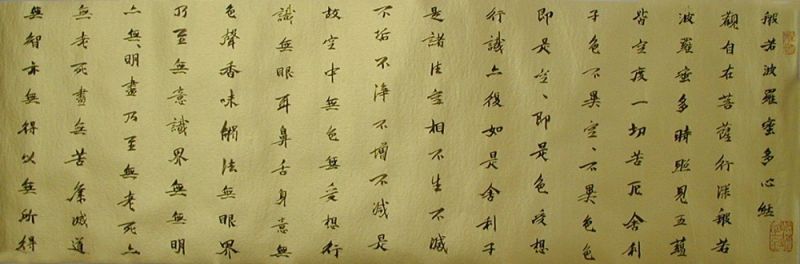 般若波羅蜜多心経
觀自在菩薩行深般若
波羅蜜多時照見五蘊
皆空度一切苦厄舍利
子色不異空、不異色色
即是空、即是色受想
行識亦復如是舍利子
是諸法空相不生不滅
不垢不淨不增不減是
故空中無色無受想行
識無眼耳鼻舌身意無
色聲香味觸法無眼界
乃至無意識界無無明
亦無、明盡乃至無老死亦
無老死盡無苦集滅道
無智亦無得以無所得